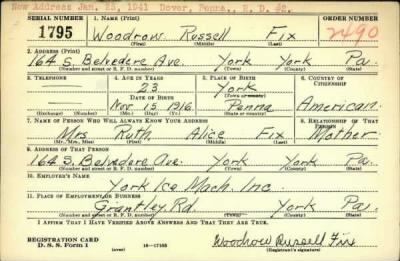 New Address Jan. 23, 1941 Dover, Penna., R. D. #2.
SERIAL NUMBER 1. NAME (Print) ORDER NUMBER
1795 Woodrow Russell Fix 2490
(First) (Middle) (Last)
2. ADDRESS (Print)
164 S. Belvedere Ave. York York Pa.
(Number and street or R. F. D. number) (Town) (County) (State)
3. TELEPHONE 4. AGE IN YEARS 5. PLACE OF BIRTH 6. COUNTRY OF CITIZENSHIP
23 York
(Town or county)
DATE OF BIRTH
Nov 15 1916 Penna American
(Exchange) (Number) (Mo.) (Day) (Yr.) (State or country)
7. NAME OF PERSON WHO WILL ALWAYS KNOW YOUR ADDRESS 8. RELATIONSHIP OF THAT PERSON
Mrs Ruth Alice Fix Mother
(Mr., Mrs., Miss) (First) (Middle) (Last)
9. ADDRESS OF THAT PERSON
164 S. Belvedere Ave. York York Pa.
(Number and street or R. F. D. number) (Town) (County) (State)
10. EMPLOYER'S NAME
York Ice Mach. Inc.
11. PLACE OF EMPLOYMENT OR BUSINESS
Grantley Rd. York Pa.
(Number and street or R. F. D. number) (Town) (County) (State)
I AFFIRM THAT I HAVE VERIFIED ABOVE ANSWERS AND THAT THEY ARE TRUE.
REGISTRATION CARD
D. S. S. Form 1 (over) 16-17105 Woodrow Russell Fix